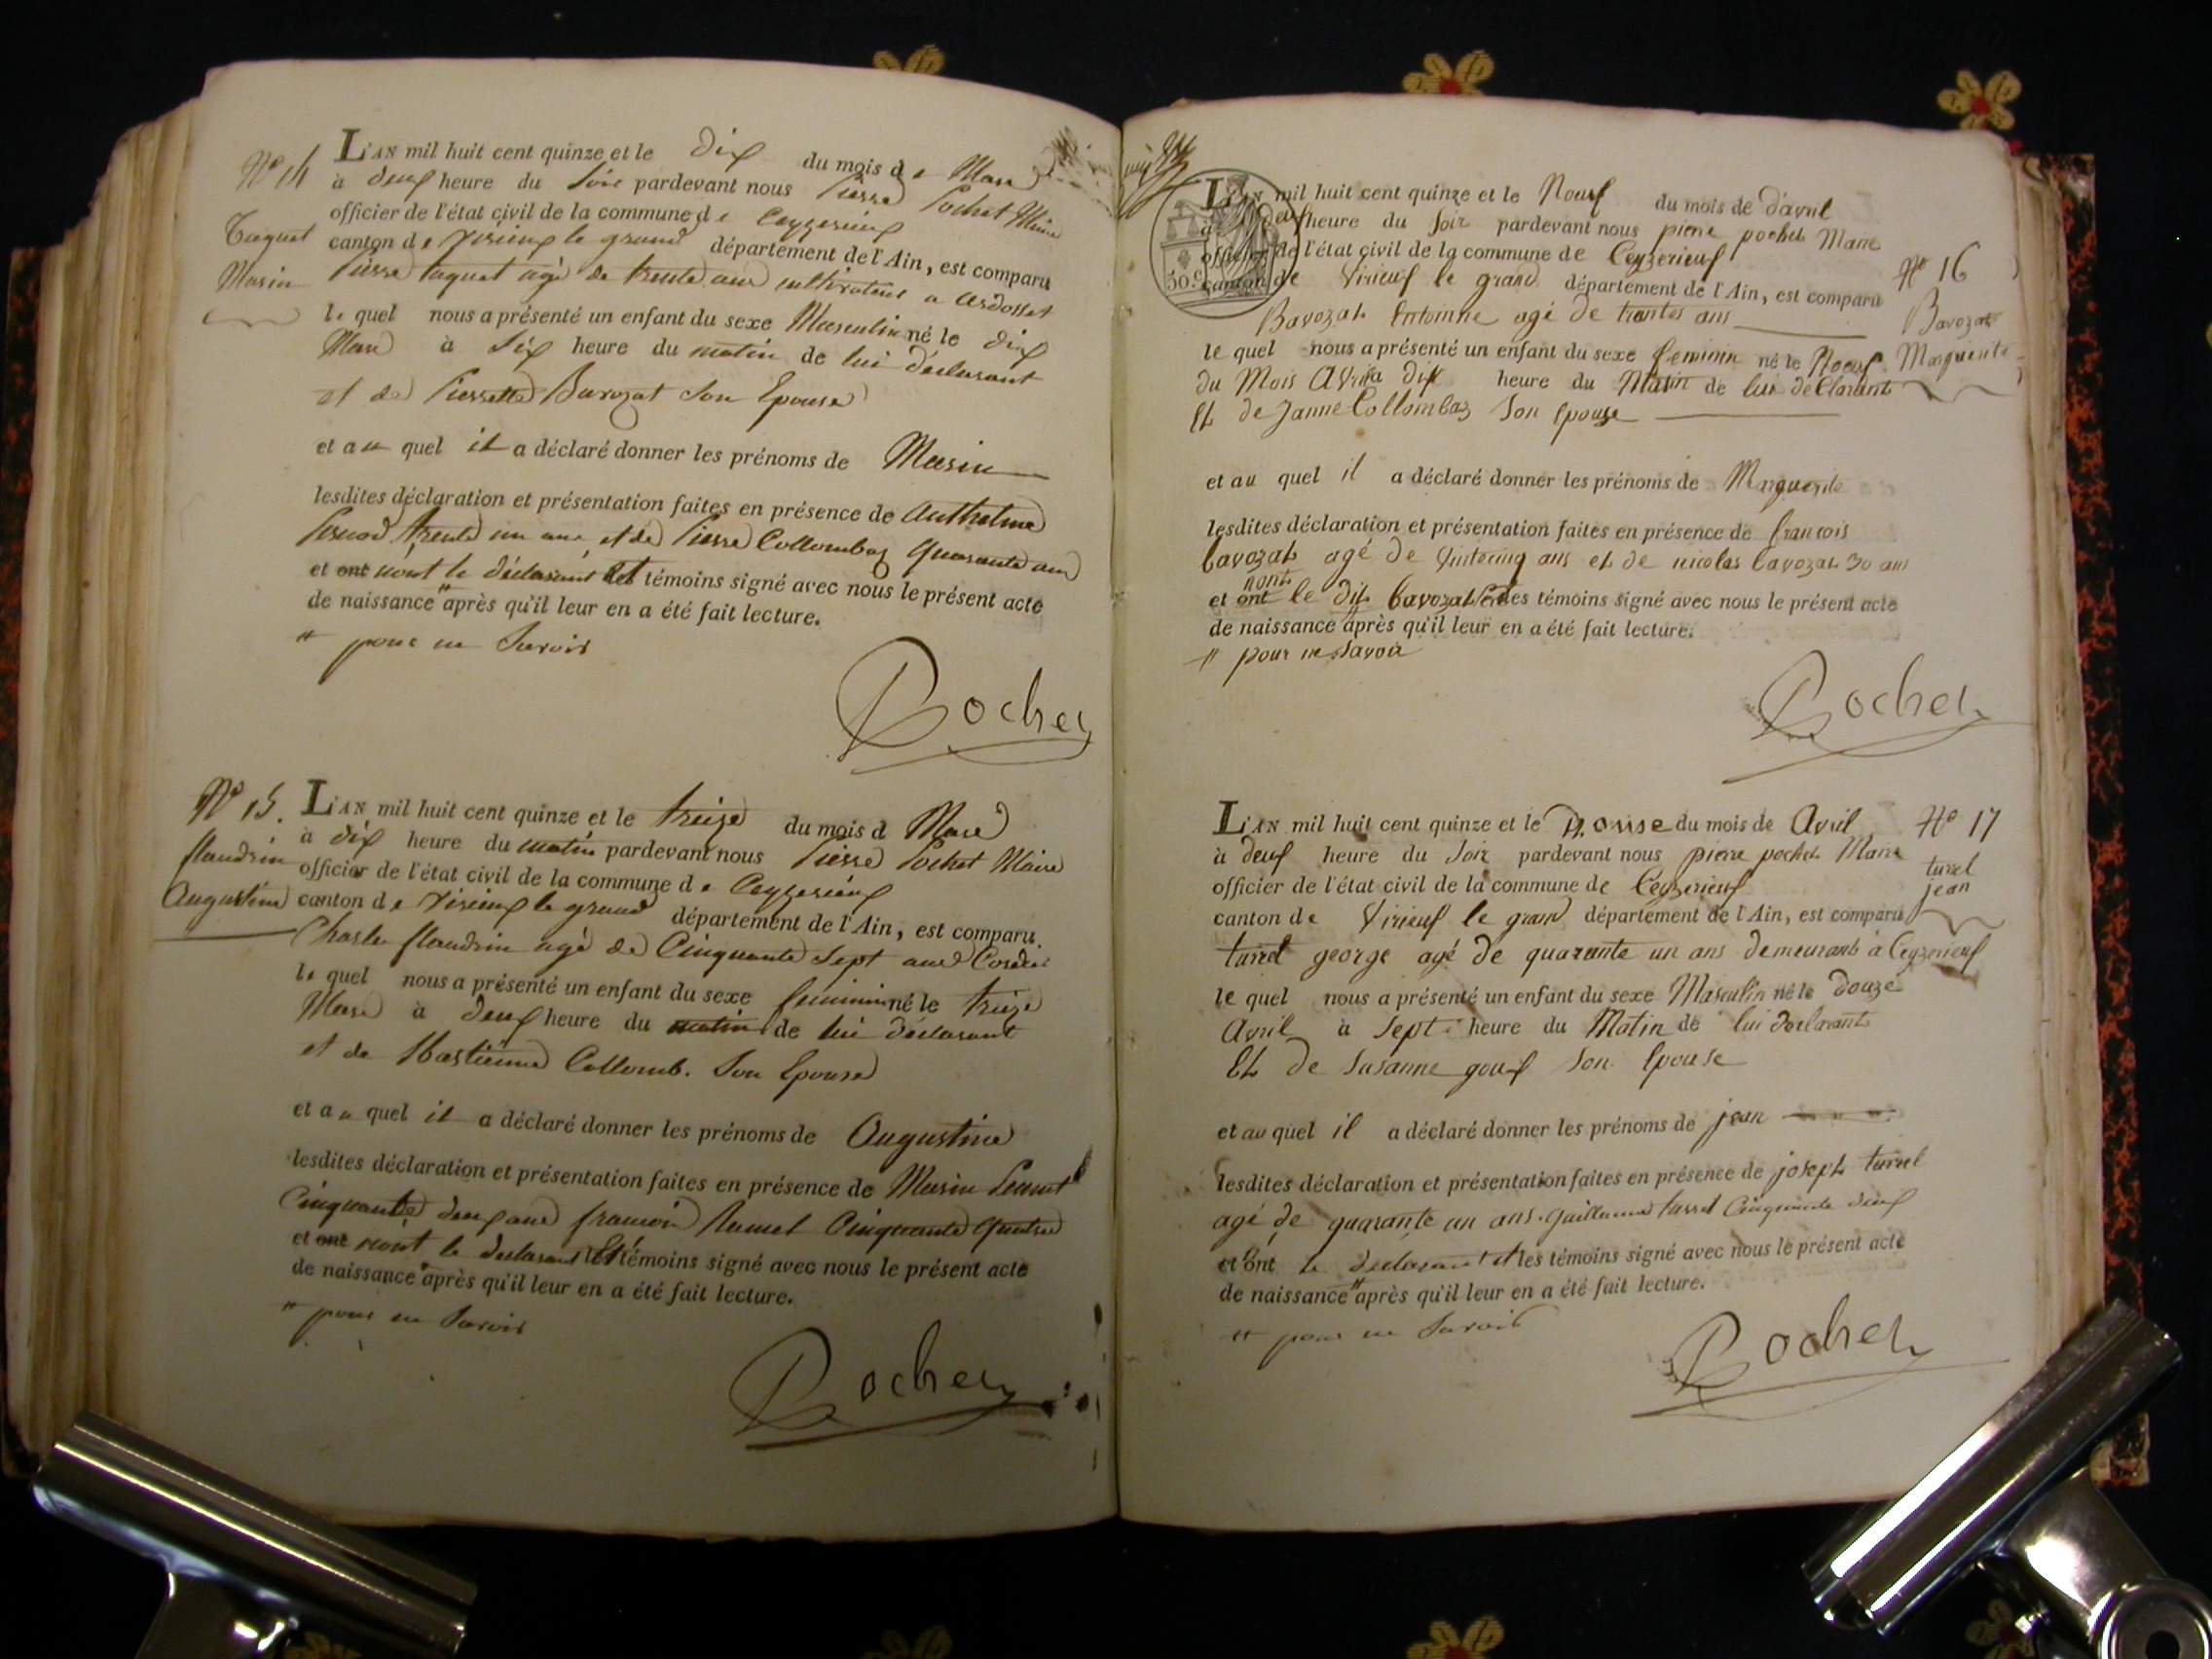 Nº 14
Taquet
Marin
L'AN mil huit cent quinze et le dix du mois de Mars
à deux heure du soir pardevant nous Pierre Pochet Maire
officier de l'état civil de la commune de Ceyzerieux
canton de Virieux le grand département de l'Ain, est comparu
Pierre taquet agé de trente ans cultivateur a ardosset
le quel nous a présenté un enfant du sexe Masculin né le dix
Mars à Six heure du matin de lui déclarant
et de Pierrette Bavozat Son Epouse
et au quel il a déclaré donner les prénoms de Marin
lesdites déclaration et présentation faites en présence de Anthelme
trente un ans et de Pierre Collombaz quarante ans
et ont nont le déclarant et témoins signé avec nous le présent acte
de naissance " après qu'il leur en a été fait lecture.
" pour ne Savoir
Pochet
Nº 15.
flandrin
Augustine
L'AN mil huit cent quinze et le treize du mois d Mars
à dix heure du matin pardevant nous Pierre Pochet Maire
officier de l'état civil de la commune de Ceyzerieux
canton de Virieux le grand département de l'Ain, est comparu.
Charles flandrin agé de Cinquante Sept ans
le quel nous a présenté un enfant du sexe feminin né le treize
Mars à deux heure du matin de lui déclarant
et de Collomb. Son Epouse
et au quel il a déclaré donner les prénoms de Augustine
lesdites déclaration et présentation faites en présence de Marin
Cinquante deux ans francois Cinquante quatre
et ont nont le declarant et témoins signé avec nous le présent acte
de naissance " après qu'il leur en a été fait lecture.
" pour ne Savoir
Pochet
L'AN mil huit cent quinze et le Neuf du mois de d'avril
à deux heure du Soir pardevant nous pierre pochet Maire
officier de l'état civil de la commune de Ceyzerieuf
canton de Virieuf le grand département de l'Ain, est comparu
Bavozat Antoinne agé de trantes ans
le quel nous a présenté un enfant du sexe feminin né le Noeuf
du Mois Avril a dix heure du Matin de lui déClarant
Et de Janne Collombaz Son Epouse
et au quel il a déclaré donner les prénoms de Marguerite
lesdites déclaration et présentation faites en présence de francois
bavozat agé de vintcinq ans et de nicolas bavozat 30 ans
nont
et ont le dit bavozat et les témoins signé avec nous le présent acte
de naissance " après qu'il leur en a été fait lecture.
" pour ne Savoir
Pochet
Nº 16
Bavozat
Marguerite
50.c
L'AN mil huit cent quinze et le Douse du mois de Avril
à deuf heure du Soir pardevant nous pierre pochet Maire
officier de l'état civil de la commune de Ceyzerieuf
canton de Virieuf le grand département de l'Ain, est comparu
turrel george agé de quarante un ans demeurant à Ceyzerieuf
le quel nous a présenté un enfant du sexe Masculin né le douze
Avril à Sept heure du Matin de lui declarant
Et de Susanne gouf Son Epouse
et au quel il a déclaré donner les prénoms de jean
lesdites déclaration et présentation faites en présence de joseph turrel
agé de quarante un ans. Guillaume turrel Cinquante deux
et ont le declarant et les témoins signé avec nous le présent acte
de naissance " après qu'il leur en a été fait lecture.
" pour ne Savoir
Pochet
Nº 17
turrel
jean